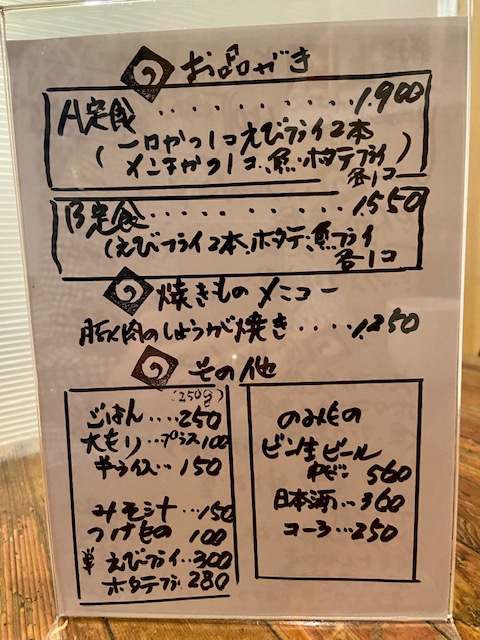 お品がき
A定食..........1.900
(一口かつ1コえびフライ2本
メンチかつ1コ.魚.ホタテフライ)
各1コ
B定食..........1.550
(えびフライ2本.ホタテ.魚フライ
各1コ
焼きものメニュー
豚肉のしょうが焼き....1.250
その他
(250g)
ごはん...250
大もり..プラス100
半ライス..150
みそ汁...150
つけもの 100
単 えびフライ..300
ホタテフライ 280
のみもの
ビン生ビール
中ビン 560
日本酒...360
コーラ...250